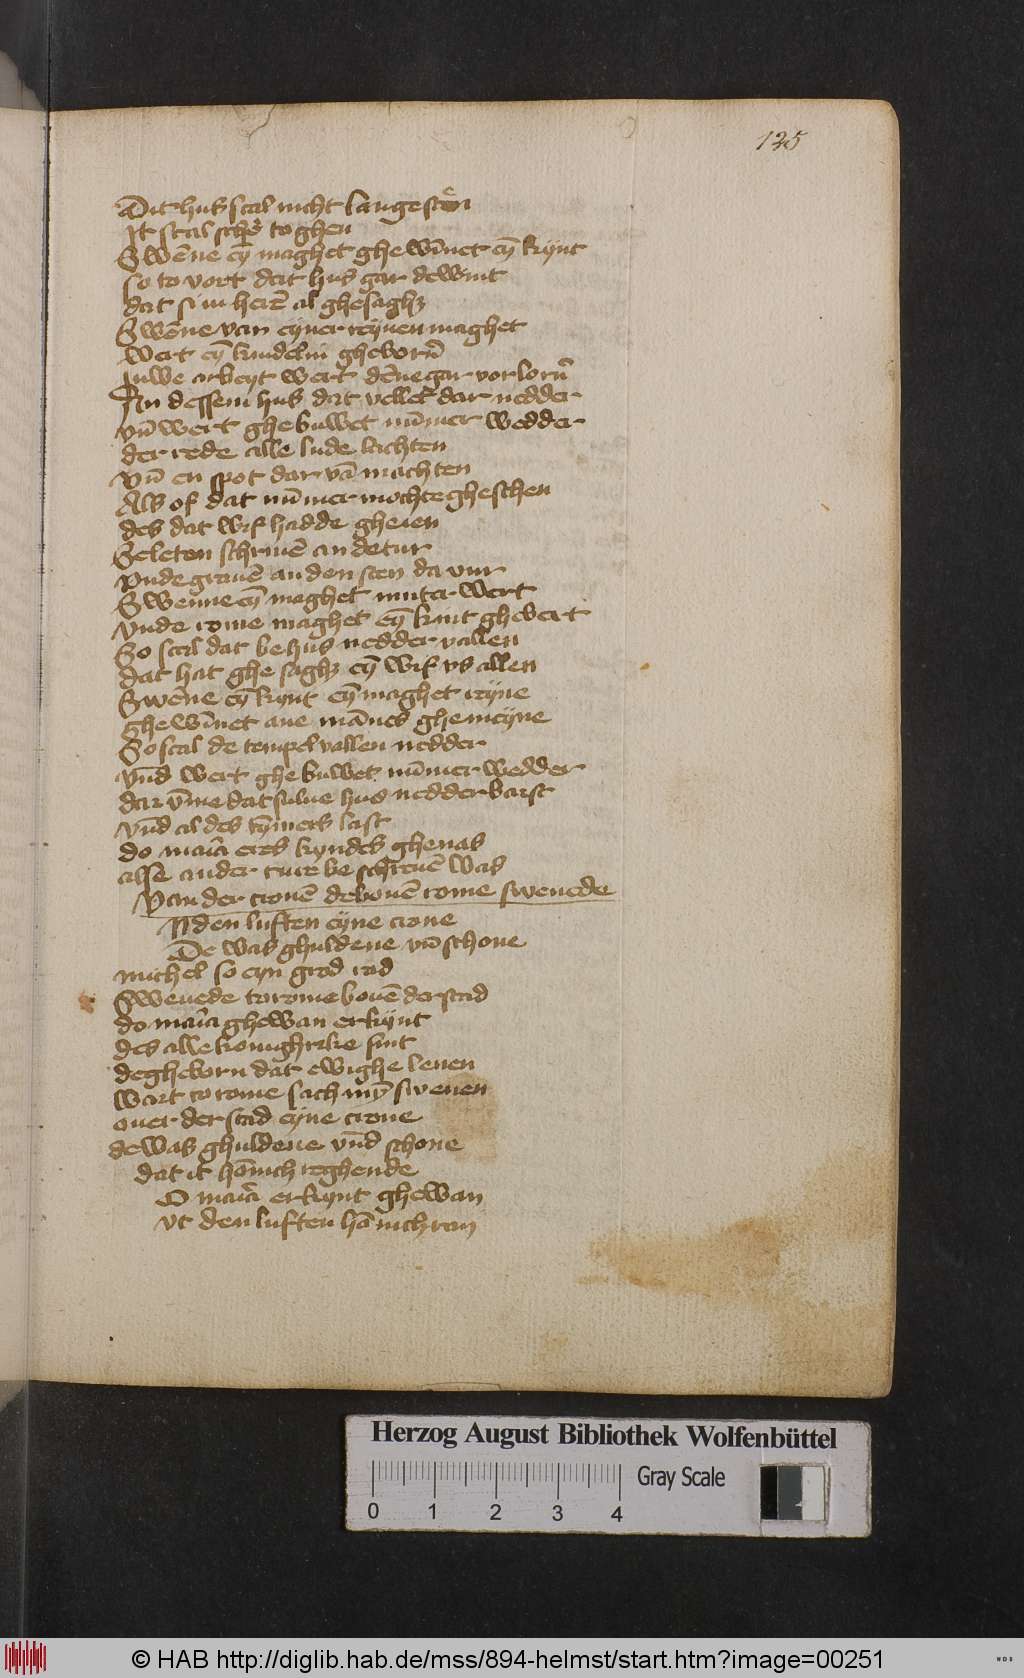 125
Dit hus scal nicht lange sten
It scal schir to ghen
Swēne eȳ maghet ghewīnet eȳ kijnt
so to vort dat hus gar dewint
dat si in herē al ghesaghet
Swēne van eyner reynen maghet
Wert eȳ kindelin gheborn̄
Juwe arbeyt wert dēne gar vorlorn̄
An dessem hus dat vellet dar nedder
vn̄ wert ghebuwet nūmer wedder
der rede alle lude lachten
vn̄ en spot dar vā machten
Als of dat nūmer mochte gheschen
des dat wif hadde gheien
Se leten schriuē an de tur
vnde grauē an den sten da vur
Swenne eȳ maghet muter wert
vnde rome maghet eȳ kint ghebert
So scal dat behus nedder vallen
dat hat ghesaghet eȳ wif vs allen
Swēne eȳ kynt eȳ maghet reyne
ghewīnet ane mānes ghemeyne
So scal de tempel vallen nedder
vn̄d wert ghebuwet nūmer wedder
dar v̄me dat sulue hus nedder barst
vn̄d al des tȳmers last
do maria eres kyndes ghenas
alse an der ture beschreuē was
Van der cronē de bouē rome sweuede
IN den luften eyne crone
De was ghuldene vn̄ schone
michel so eyn grod rad
Sweuede to rome bouē der stad
do maria ghewan er kynt
des alle konighrike sint
de gheborn dat ewighe leuen
Wart to rome sach mȳ sweuen
ouer der stad eyne crone
de was ghuldene vn̄d schone
dat it hōnich reghende
DO maria er kynt ghewan
vt den luften hōnich ran
Herzog August Bibliothek Wolfenbüttel
Gray Scale
0 1 2 3 4
© HAB http://diglib.hab.de/mss/894-helmst/start.htm?image=00251